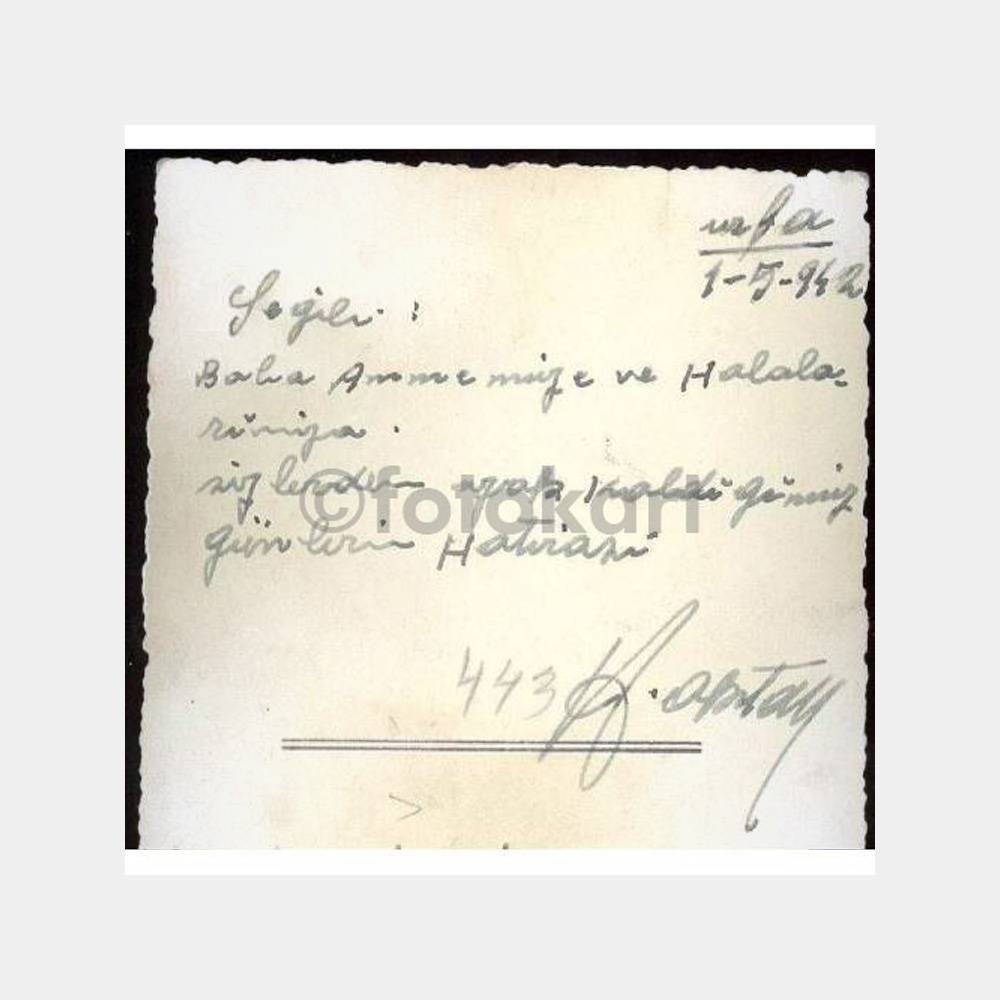 urfa
1-5-942
Segili :
Baba Annemize ve Halala-
rımıza .
sizlerden uzak kaldığımız
günlerin Hatırası
©fotokart
443